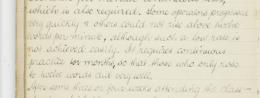 which is also required. Some operators progressed
very quickly & others could not rise above twelve
words per minute, although such a low rate is
not achieved easily. It requires continuous
practice for months, so that those who only rose
to twelve words did very well.
After some three or four weeks attending the class –